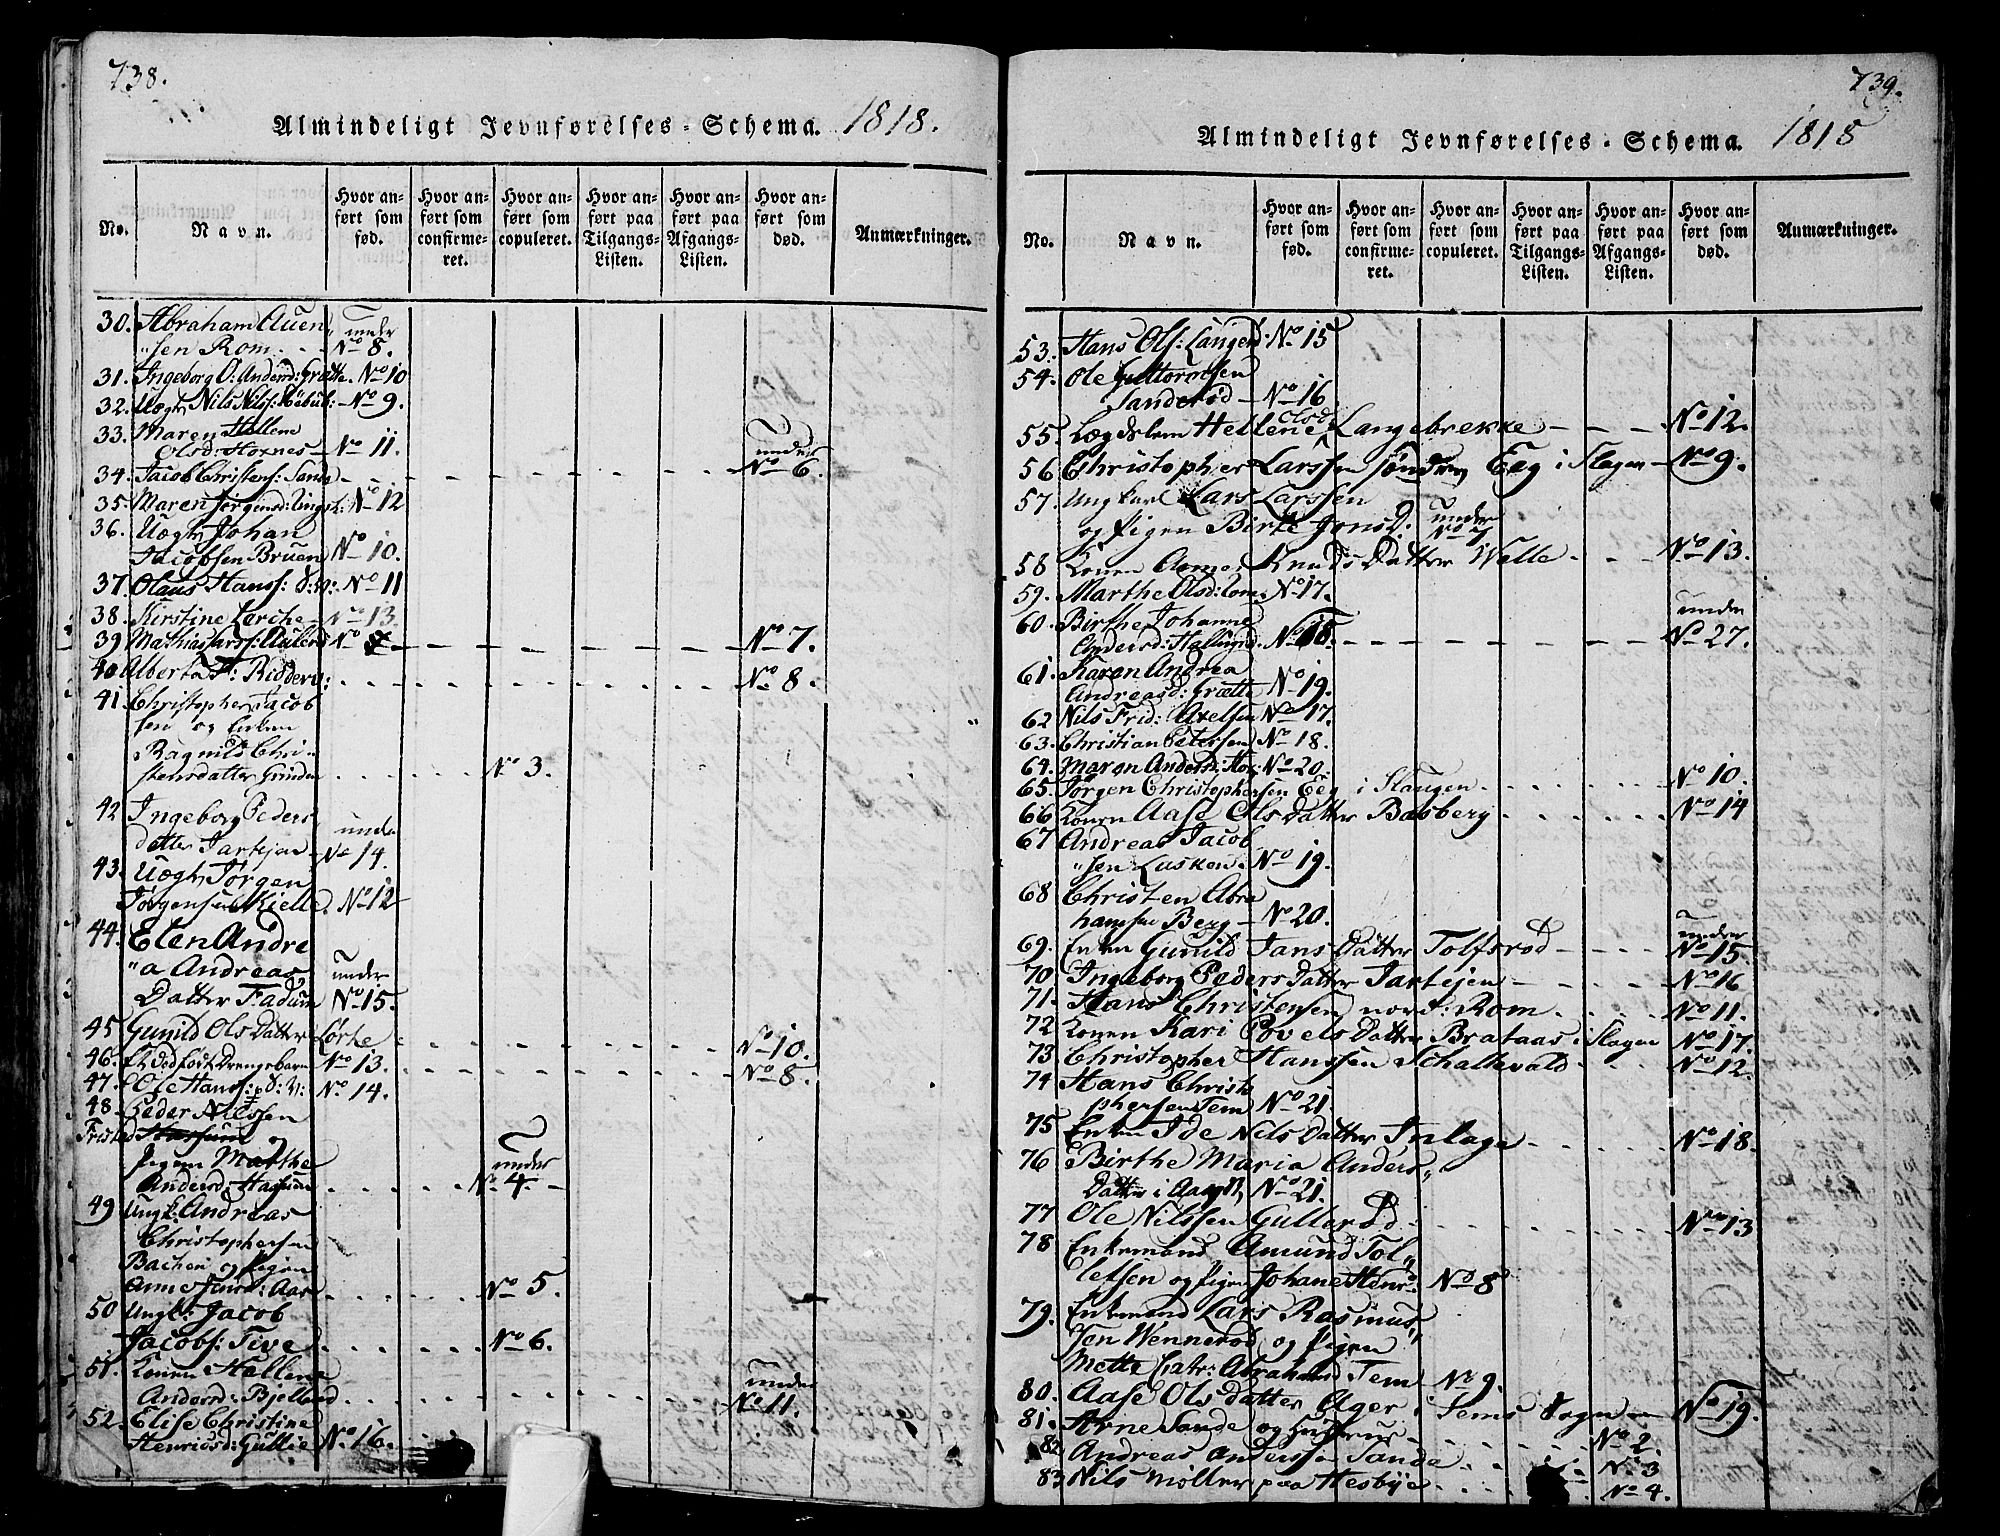 738.
Almindeligt Jevnførelses-Schema. 1818.
No.
Navn.
Hvor anført som fød.
Hvor anført som confirmeret.
Hvor anført som copuleret.
Hvor anført paa Tilgangs-Listen.
Hvor anført paa Afgangs-Listen.
Hvor anført som død.
Anmærkninger.
30. Abraham Auen under
"sen Rom. No 8.
31. Ingeborg O: Andersd: Grætte. No 10
32. Uægt. Nils Nilss: No 9.
33. Maren Hellene
Olsd: Hoxnes No 11. under
34. Jacob Christens: Sande No 6.
35. Maren Jørgensd: No 12
36. Uægt. Johan
Jacobsen Bruen No 10.
37. Olaus Hanss: No 11
38. Kirstine Lerche No 13.
39 Mathias Larss: No 8 No 7.
40 Alberta No 8.
41. Christopher Jacob
sen og Enken
Ragnild Chri
stensdatter Grinden No 3.
42 Ingeborg Peders
datter Jartejen under No 14.
43. Uægt. Jørgen
Jørgensen Kielle. No 12
44. Elen Andre
"a Andreas under
Datter Fadum No 15.
45 Gunild Ols Datter Lørke No 10.
46. Et dødfødt Drengebarn No 13. No 8.
47. Ole Hanss: No 14.
48. Peder Nilssen
og
Pigen Marthe under
Andersd: Hassum No 4.
49 Ungk: Andreas
Christophersen
Bachen og Pigen
Anne No 5.
50 Ungk: Jacob
Jacobs: Tive No 6.
51. Konen Hellene under
Andersd: Bjelland No 11.
52. Elise Christine
Henrichsd: Gullie No 16.
739.
Almindeligt Jevnførelses-Schema. 1818
No.
Navn.
Hvor anført som fød.
Hvor anført som confirmeret.
Hvor anført som copuleret.
Hvor anført paa Tilgangs-Listen.
Hvor anført paa Afgangs-Listen.
Hvor anført som død.
Anmærkninger.
53. Hans Ols: No 15
54. Ole Guttormsen
Sanderød No 16.
55. Lægdslem Hellene Olsd Langebrekke No 12.
56 Christopher Larssen Søndre Eeg i Slagen No 9.
57. Ungkarl Lars Larssen
og Pigen Birte Jonsd: under No 7
58 Konen Knuds Datter Welle No 13.
59. Marthe Olsd: No 17.
60. Birthe Johanne under
Andersd: No 18. No 27.
61. Karen Andrea
Andreasd: Grætte No 19.
62 Nils Frid: Axelsen No 17.
63. Christian Petersen No 18.
64. Maren Andersd: Hox: No 20.
65. Jørgen Christophersen Eeg i Slaugen No 10.
66 Konen Aase Ols Datter Basberg No 14
67 Andreas Jacob
"sen Lasken No 19.
68 Christen Abra
hamsen Berg No 20.
69. Enken Gunild Jans Datter Tolfsrød under No 15.
70 Ingeborg Peders Datter Jartejen No 16
71. Hans Christensen nord: Rom No 11.
72 Konen Kari Povels Datter Brataas i Slagen No 17.
73 Christopher Hanssen Schallevald No 12.
74 Hans Christo
phersen Tem No 21.
75 Enken Ide Nils Datter Inlage No 18.
76 Birthe Maria Anders"
Datter i No 21.
77 Ole Nilssen Gullerød No 13
78 Enkemand Amund Tol"
lefsen og Pigen Johane No 8
79. Enkemand Lars Rasmus"
sen Wennerød og Pigen
Mette Abrahamsd Tem No 9.
80. Aase Ols datter Ager i Sems Sogn No 19.
81. Arne Sande og Hustrue No 2.
82 Andreas Anderssen Sande No 3
83 Nils Møller paa Hesbye No 4.